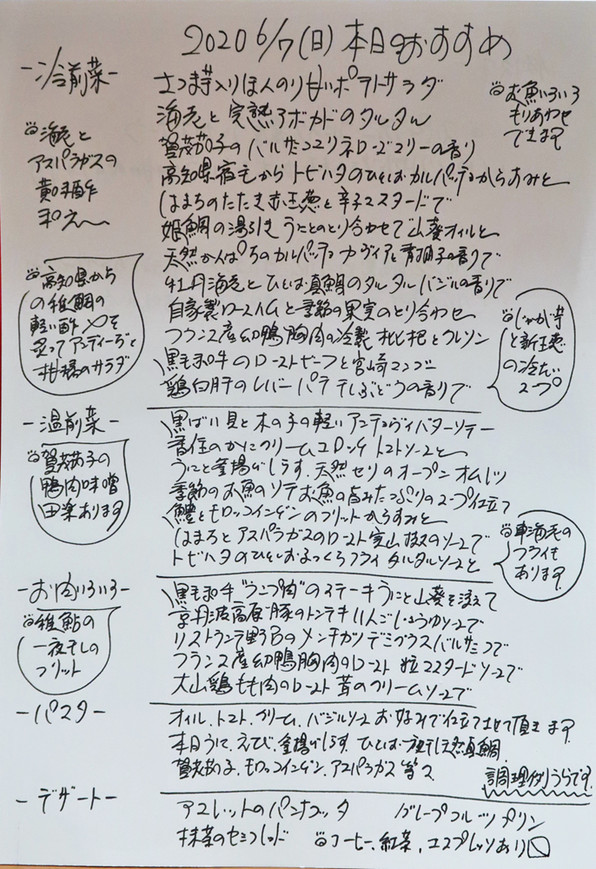 2020 6/7(日)本日のおすすめ
-冷前菜-
さつま芋入りほんのり甘いポテトサラダ
海老と完熟アボカドのタルタル
賀茂茄子のバルサミコマリネローズマリーの香り
高知県宿毛からトビハタのひといおカルパッチョからすみと
はまちのたたき赤玉葱と辛子マスタードで
姫鯛の湯引きうにとのとり合わせで山葵オイルと
天然かんぱちのカルパッチョ キャヴィアと青柚子の香りで
牡丹海老とひといお真鯛のタルタルバジルの香りで
自家製ロースハムと季節の果実のとり合わせ
フランス産幼鴨胸肉の冷製 枇杷とクレソン
黒毛和牛のローストビーフと宮崎マンゴー
鶏白肝のレバーパテ干しぶどうの香りで
お魚いろいろ
もりあわせ
できます
海老と
アスパラガスの
黄味酢
和え〜
高知県から
の稚鯛の
軽い酢〆を
炙ってアンディーブと
柑橘のサラダ
じゃが芋
と新玉葱
の冷たい
スープ
-温前菜-
黒ばい貝と木の子の軽いアンチョヴィバターソテー
香住のかにクリームコロッケ トマトソースと
うにと釜揚げしらす、天然セリのオープンオムレツ
季節のお魚のソテお魚の旨みたっぷりのスープ仕立て
鱧とモロッコインゲンのフリットからすみと
はまちとアスパラガスのロースト実山椒のソースで
トビハタのひといおふっくらフライ タルタルソースと
賀茂茄子の
鴨肉味噌
田楽あります
車海老の
フライも
あります
-お肉いろいろ-
黒毛和牛"ランプ肉"のステーキうにと山葵を添えて
京丹波高原豚のトンテキりんごしょうゆソースで
リストランテ野呂のメンチカツデミグラスバルサミコで
フランス産幼鴨胸肉のロースト 粒マスタードソースで
大山鶏もも肉のロースト 茸のクリームソースで
稚鮎の
一夜干しの
フリット
-パスタ-
オイル、トマト、クリーム、バジルソースお好みで仕立てさせて頂きます
本日うに、えび、釜揚げしらす、ひといお一夜干し天然真鯛
賀茂茄子、モロッコインゲン、アスパラガス等々
調理例うらです。
-デザート-
アマレットのパンナコッタ グレープフルーツプリン
抹茶のセミフレッド コーヒー、紅茶、エスプレッソあり